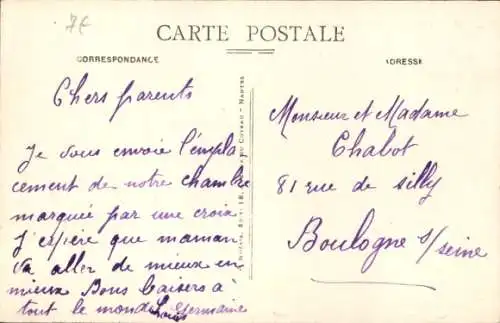 7€
CARTE POSTALE
CORRESPONDANCE
ADRESSE
Chers parents
Je vous envoie l'empla
cement de notre chambre
marquée par une croix
j'espère que maman
va aller de mieux en
mieux Bons baisers à
tout le monde Louis Germaine
NANTES
Monsieur et Madame
Chabot
81 rue de Silly
Boulogne s/seine